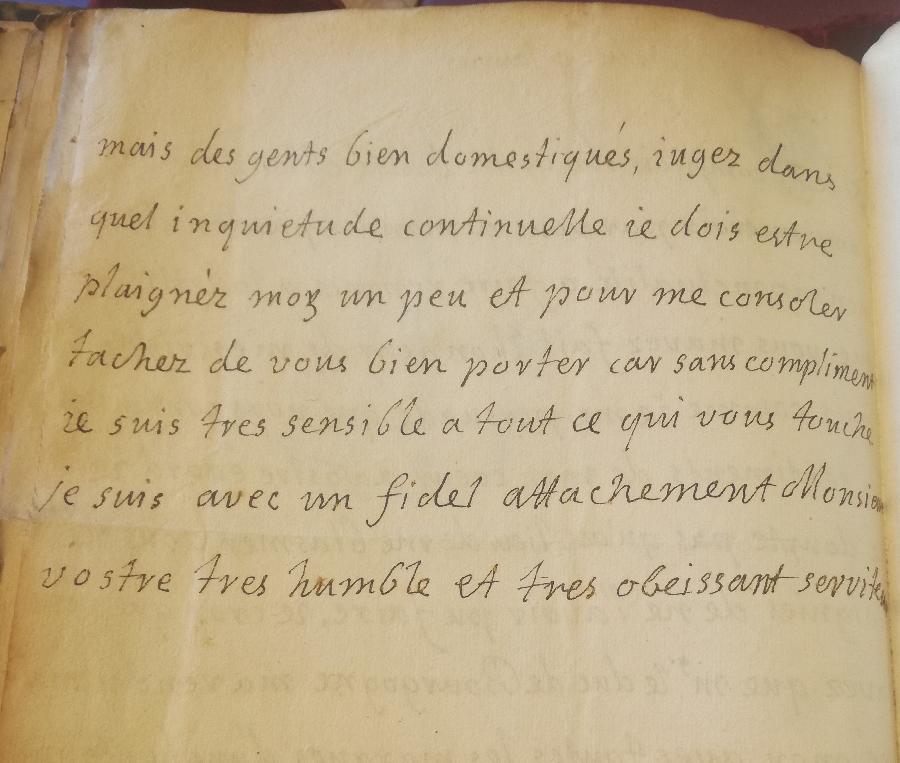 mais des gents bien domestiqués, iugez dans
quel inquietude continuelle ie dois estre
plaignéz moy un peu et pour me consoler
tachez de vous bien porter car sans compliment
ie suis tres sensible a tout ce qui vous touche
je suis avec un fidel attachement Monsieur
vostre tres humble et tres obeissant serviteur